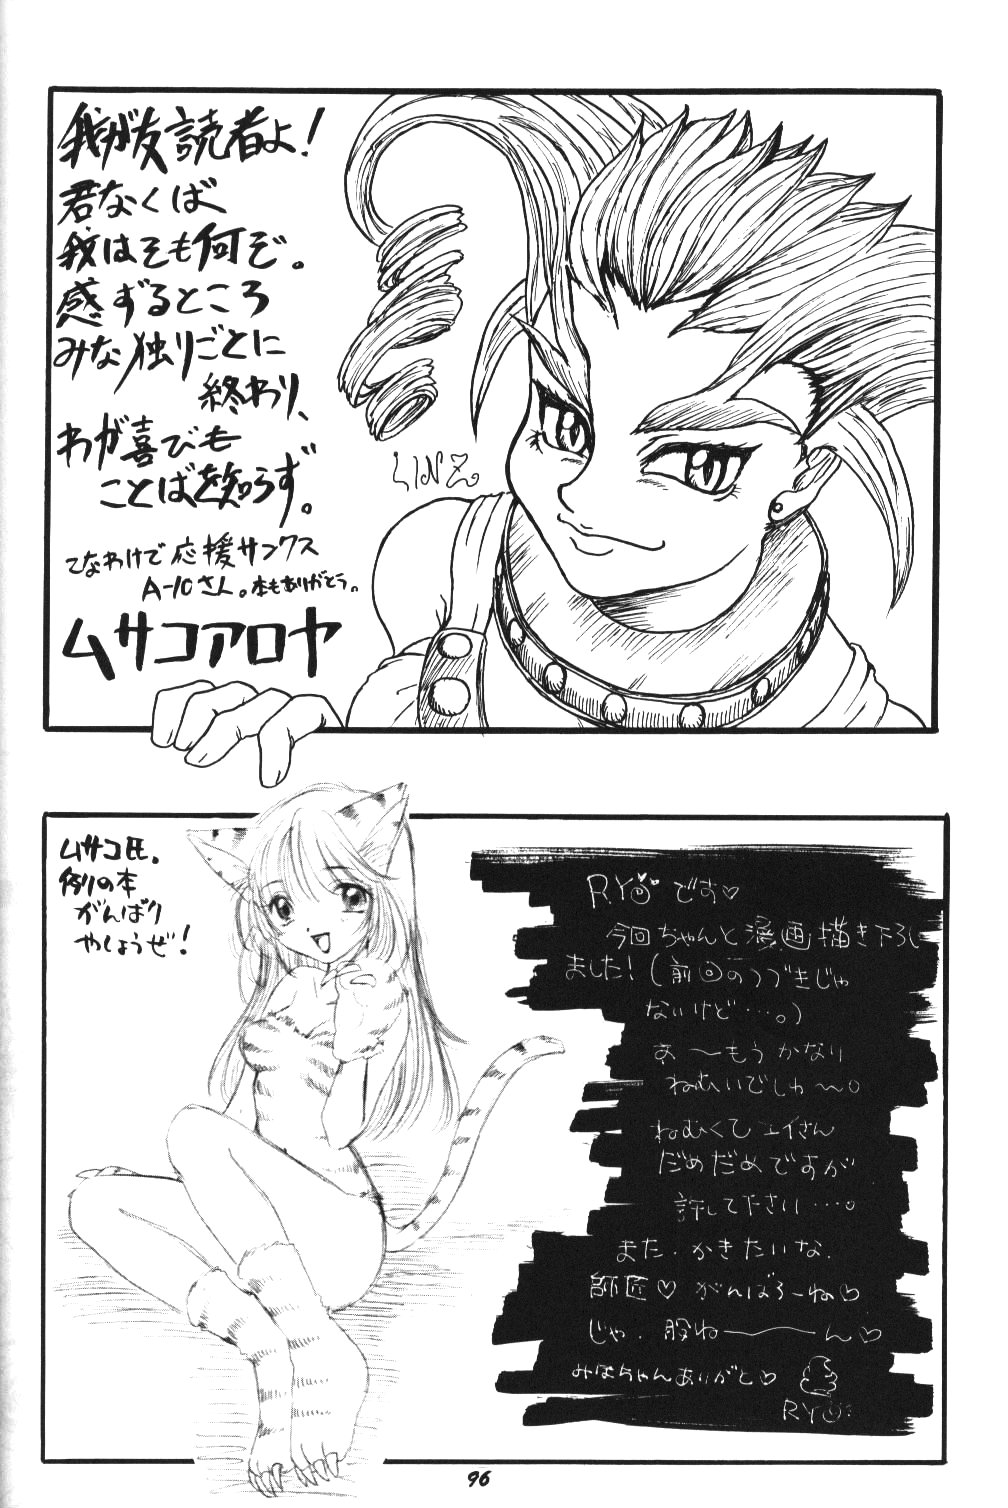 我が友読者よ!
君なくば
我はそも何ぞ。
感ずるところ
みな独りごとに
終わり、
わが喜びも
ことばを知らず。
てなわけで応援サンクス
A-10さん。本もありがとう。
ムサコアロヤ
LINZ
ムサコ氏。
例の本
がんばり
やしょうぜ!
RYOです♡
今回ちゃんと漫画描き下ろし
ました!(前回のつづきじゃ
ないけど…。)
あ〜もうかなり
ねむいでしゅ〜。
ねむくてエイさん
だめだめですが
許して下さい…。
また、かきたいな。
師匠♡がんばろーね♡
じゃ、股ね———ん♡
みほちゃんありがと♡
RYO
96